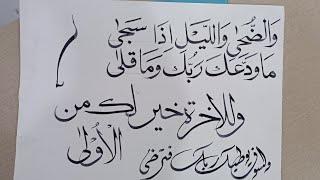 والضحى والليل اذا سجى
ما ودعك ربك وما قلى
وللاخرة خير لك من
الأولى
ولسوف يعطيك ربك فترضى